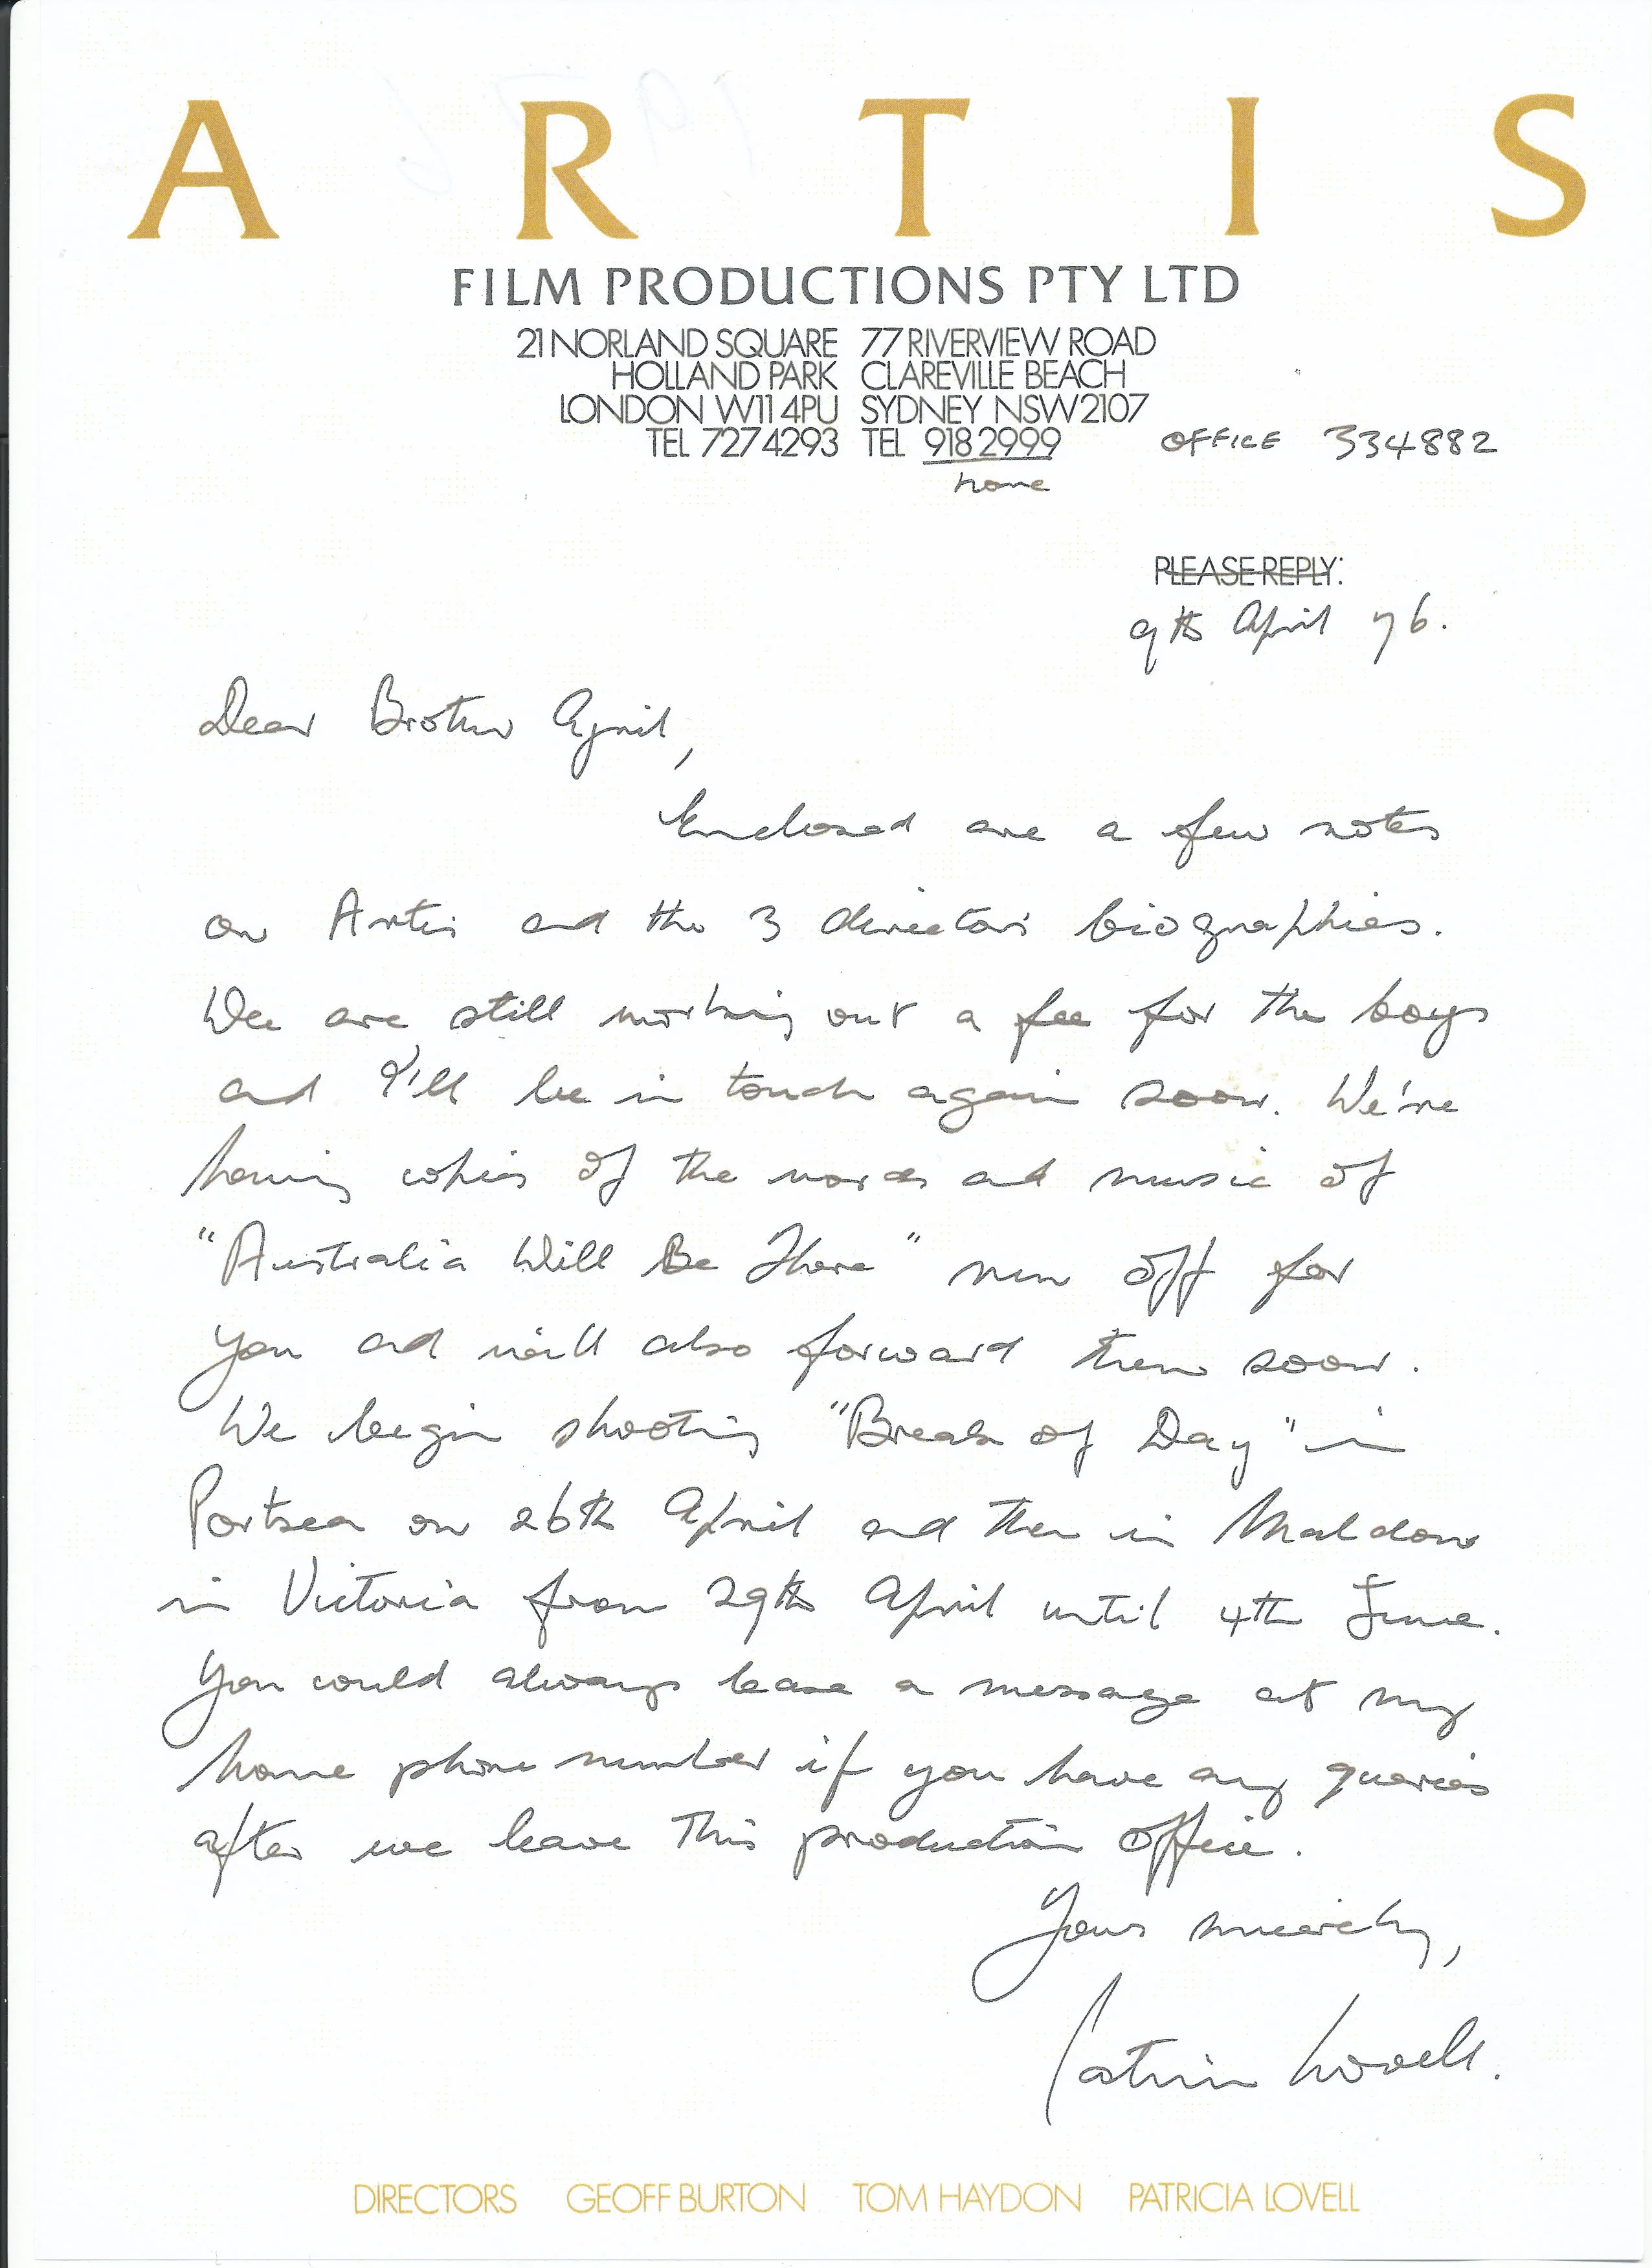 ARTIS
FILM PRODUCTIONS PTY LTD
21 NORLAND SQUARE 77 RIVERVIEW ROAD
HOLLAND PARK CLAREVILLE BEACH
LONDON W11 4PU SYDNEY NSW 2107
TEL 727 4293 TEL 918 2999 OFFICE 334882
home
PLEASE REPLY:
9th April 76.
Dear Brother April,
Enclosed are a few notes
on Artis and the 3 directors biographies.
We are still working out a fee for the boys
and I'll be in touch again soon. We're
having copies of the words and music of
"Australia Will Be There" run off for
you and will also forward them soon.
We begin shooting "Break of Day" in
Portsea on 26th April and then in Maldon
in Victoria from 29th April until 4th June.
You could always leave a message at my
home phone number if you have any queries
after we leave this production office.
Yours sincerely,
Patricia Lovell.
DIRECTORS GEOFF BURTON TOM HAYDON PATRICIA LOVELL